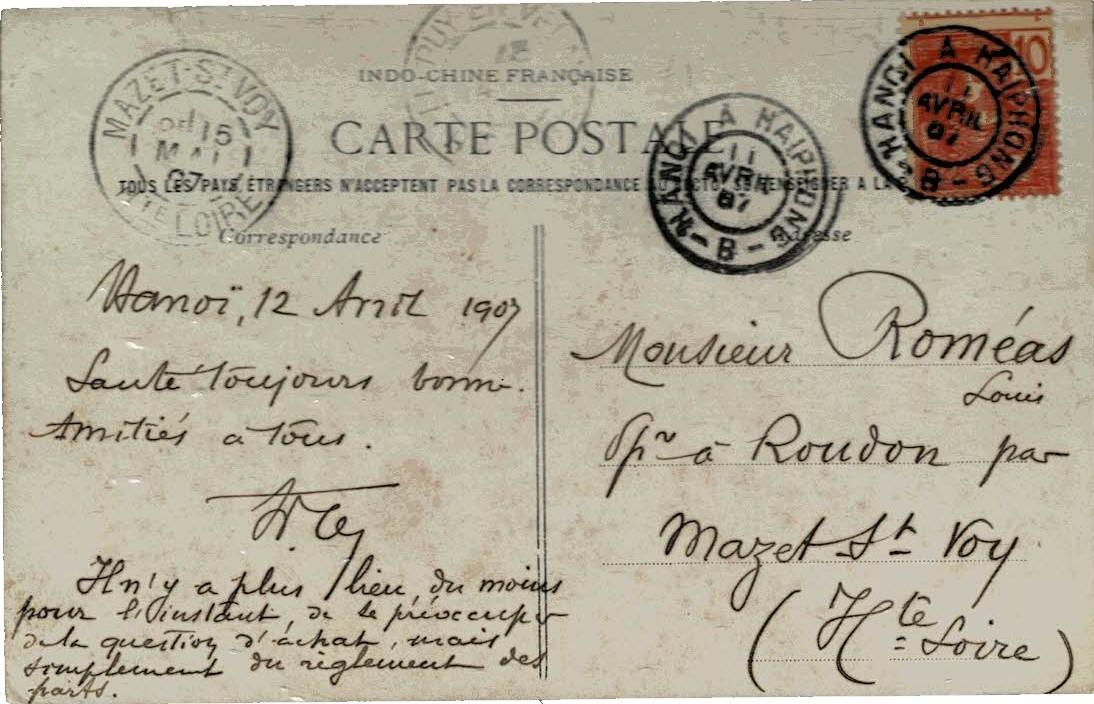 INDO-CHINE FRANÇAISE
CARTE POSTALE
TOUS LES PAYS ÉTRANGERS N'ACCEPTENT PAS LA CORRESPONDANCE AU RECTO, SE RENSEIGNER A LA
Correspondance
Adresse
MAZET-ST VOY
15
MAI
07
HTE LOIRE
HANOI A HAIPHONG
11
AVRIL
07
B
HANOI A HAIPHONG
11
AVRIL
07
B
10
Hanoï, 12 Avril 1907
Santé toujours bonne.
Amitiés à tous.
Il n'y a plus lieu, du moins
pour l'instant, de se préoccuper
de la question d'achat, mais
simplement du règlement des
parts.
Monsieur Roméas
Louis
Pre à Roudon par
Mazet St Voy
(Hte Loire)